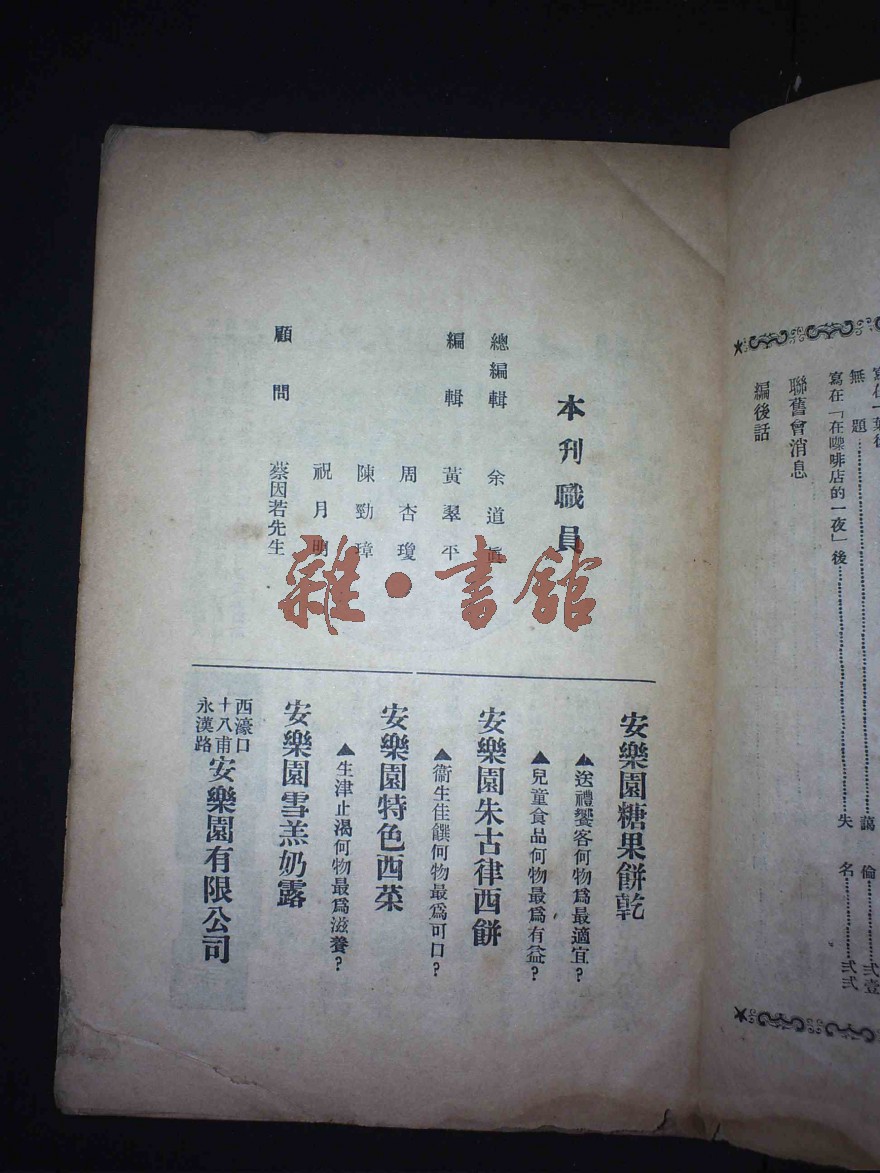 無題……藹倫……弍壹
寫在「在㗎啡店的一夜」後……失名……弍弍
聯舊會消息
編後話
本刊職員
總編輯 余道眞
編輯 黃翠平
周杏瓊
陳勁璋
祝月明
顧問 蔡因若先生
安樂園糖果餅乾
▲送禮饗客何物爲最適宜?
▲兒童食品何物最爲有益?
安樂園朱古律西餅
▲衞生佳饌何物最爲可口?
安樂園特色西菜
▲生津止渴何物最爲滋養?
安樂園雪羔奶露
西濠口
十八甫
永漢路
安樂園有限公司
雜·書館